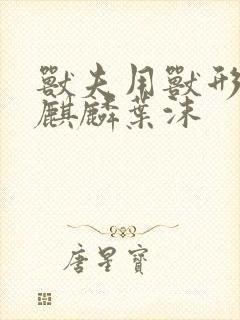 獸夫用獸形
麒麟葉沫
唐星寶